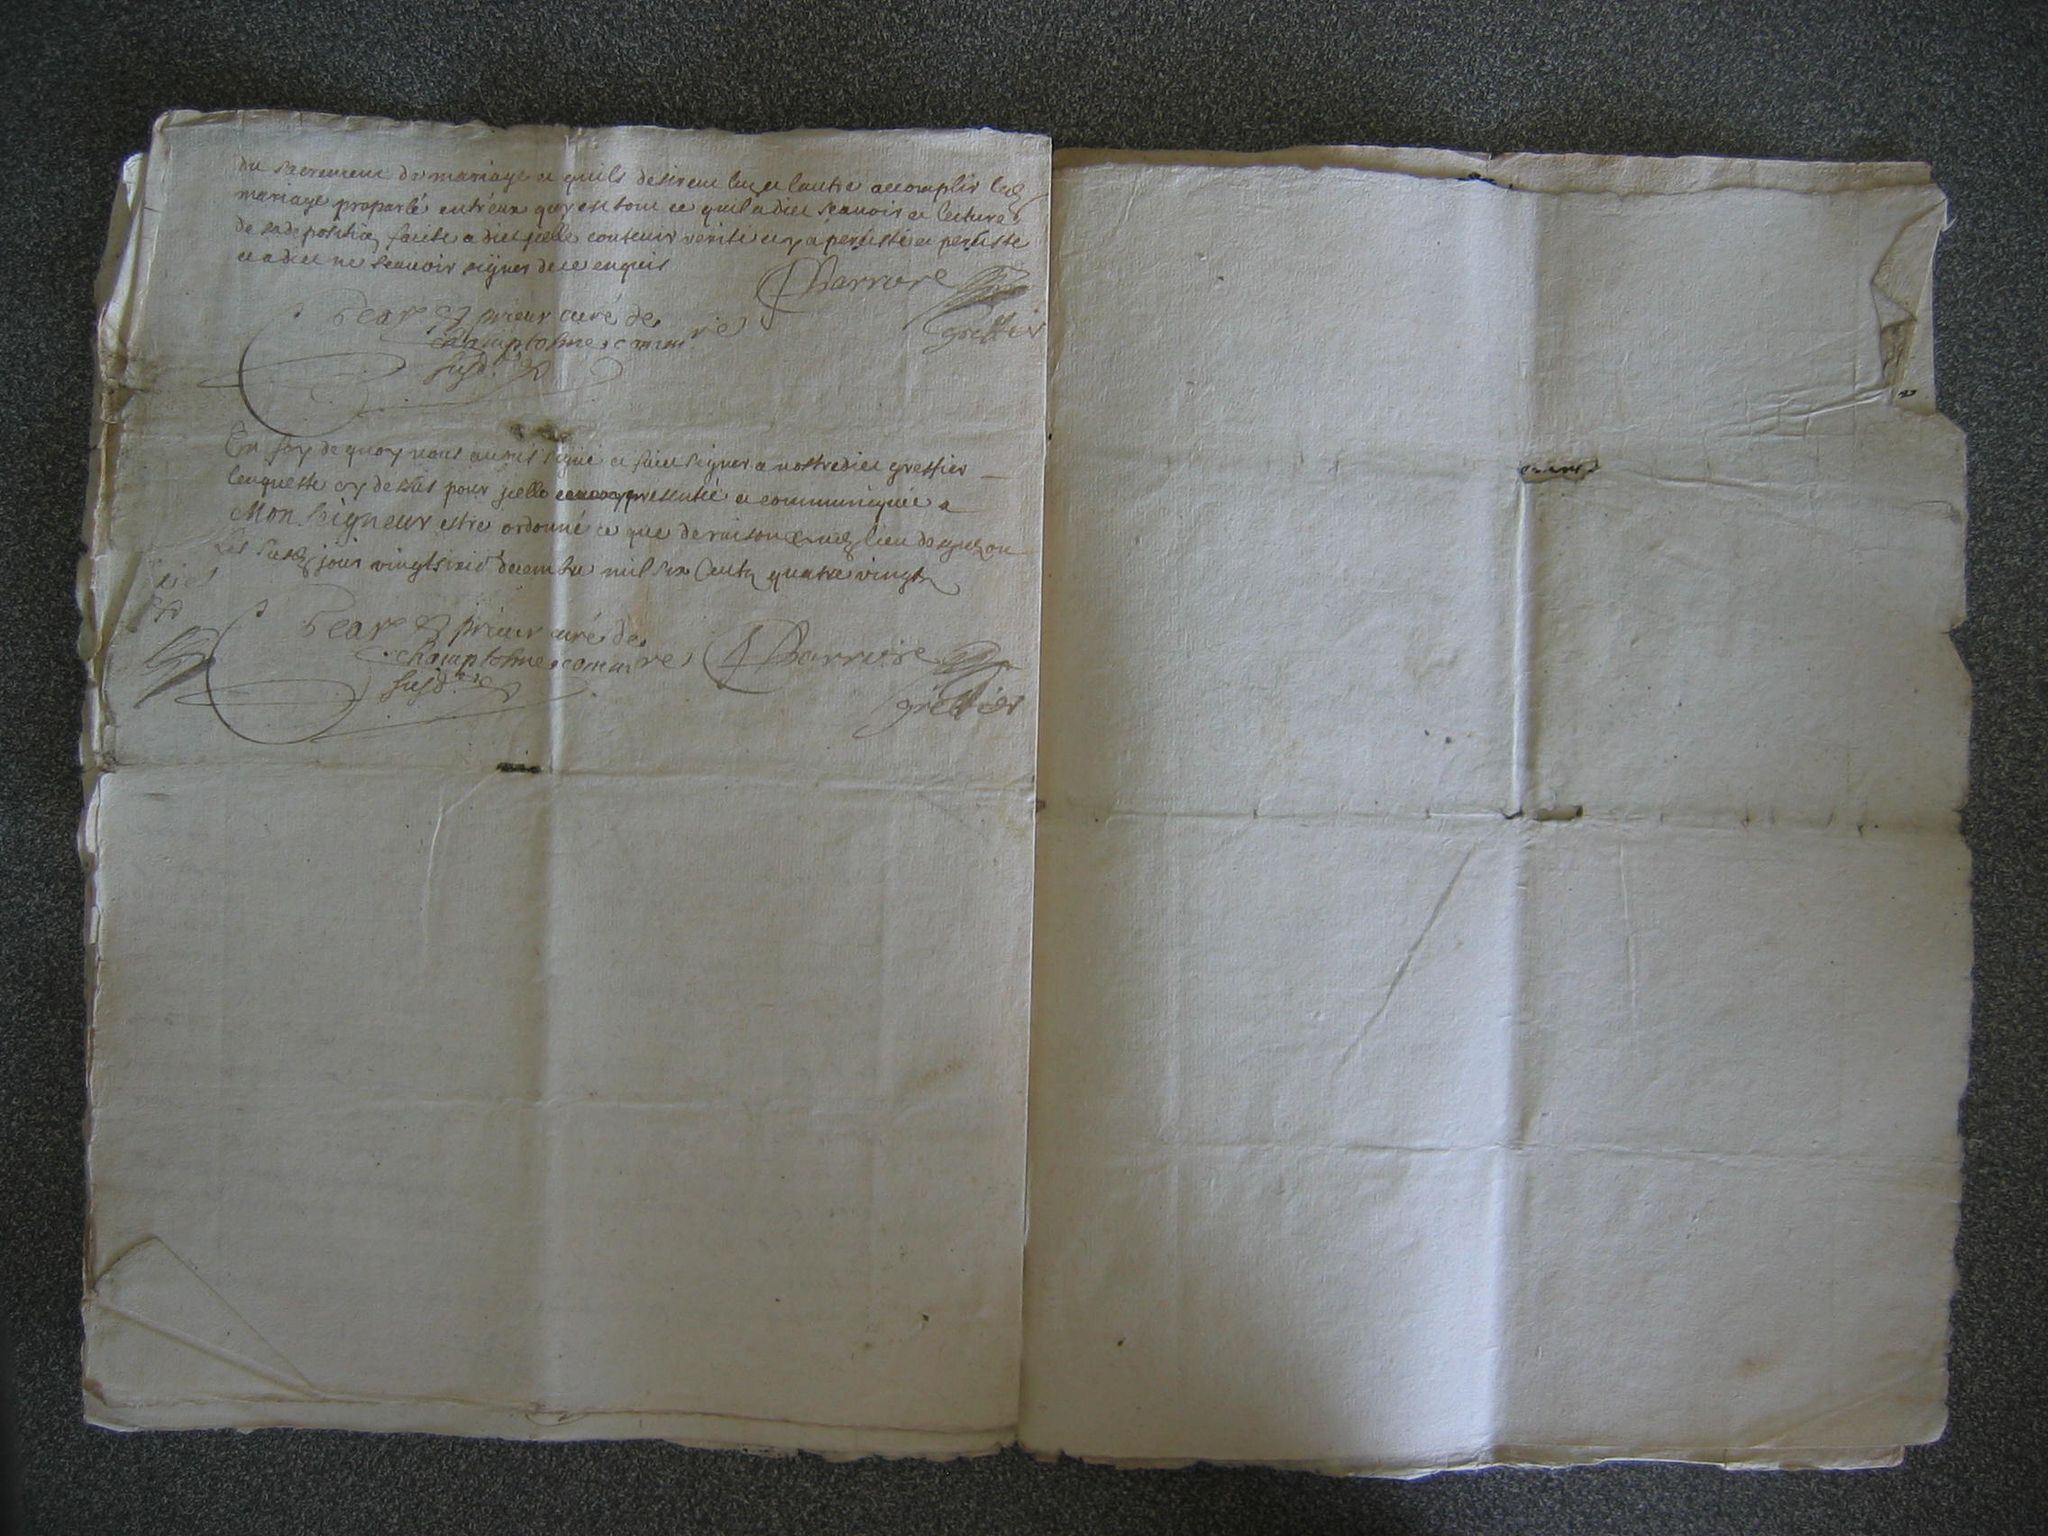 du sacrement de mariage et quils desirent lun et lautre accomplir led
mariage proparlé entréux quy est tout ce quil a diet scauoir et lecture
de sa deposition faicte a diet jcelle contenir verité et y a percisté et perciste
et a diet ne scauoir signer de ce enquis
Barriere
greffier
prieur curé de
champtosme comm.re
susd.
En foy de quoy nous auons signé et faict signer a nostredict greffier
lenqueste cy dessus pour jcelle presentée et communiquée a
Monseigneur estre ordonné ce que de raison lieu
les jour vingt decembre mil six Cents quatre vingts
prieur curé de
champtosme comm.re
susd.
Barriere
greffier